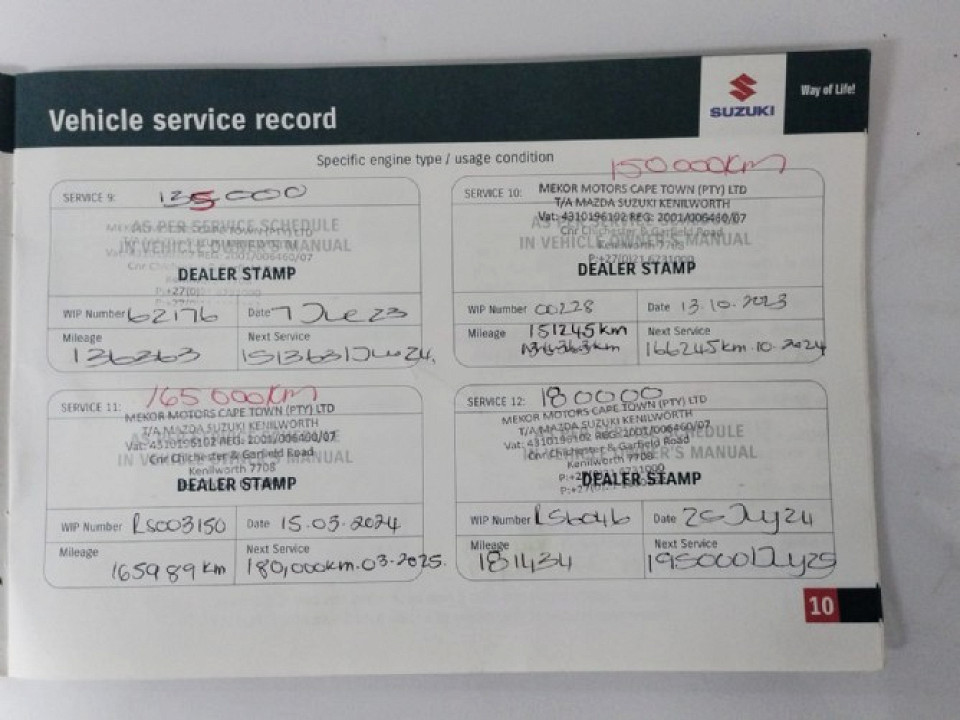 Vehicle service record
SUZUKI
Way of Life!
Specific engine type / usage condition
SERVICE 9: 135000
AS PER SERVICE SCHEDULE
IN VEHICLE OWNER'S MANUAL
DEALER STAMP
WIP Number 62176
Date 7 June 23
Mileage
136363
Next Service
151363 | June 24.
150 000km
SERVICE 10:
MEKOR MOTORS CAPE TOWN (PTY) LTD
T/A MAZDA SUZUKI KENILWORTH
Vat: 4310196102 REG: 2001/006460/07
Cnr Chichester & Garfield Road
Kenilworth 7708
P:+27(0)21 6731000
IN VEHICLE OWNER'S MANUAL
DEALER STAMP
WIP Number 00228
Date 13.10.2023
Mileage
151245km
Next Service
166245km.10.2024
165 000km
SERVICE 11:
MEKOR MOTORS CAPE TOWN (PTY) LTD
T/A MAZDA SUZUKI KENILWORTH
Vat: 4310196102 REG: 2001/006460/07
Cnr Chichester & Garfield Road
IN VEHICLE OWNER'S MANUAL
Kenilworth 7708
DEALER STAMP
WIP Number RS003150
Date 15.03.2024
Mileage
165989km
Next Service
180,000km.03.2025.
SERVICE 12: 180000
MEKOR MOTORS CAPE TOWN (PTY) LTD
T/A MAZDA SUZUKI KENILWORTH
Vat: 4310196102 REG: 2001/006460/07
Cnr Chichester & Garfield Road
Kenilworth 7708
DEALER STAMP
WIP Number RS6046
Date 25 July 24
Mileage
181434
Next Service
195000 | July 25
10